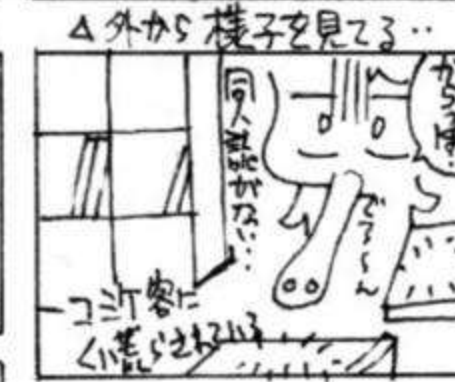 △外から様子を見てる‥
からっぽ!
同人誌がない‥
でろ〜ん
コミケ客に
くい荒らされている